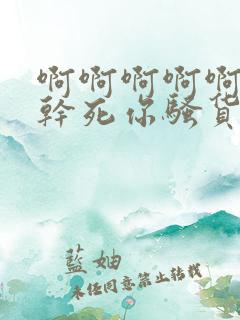 啊啊啊啊啊
幹死你骚货
藍妯
未经同意禁止转载